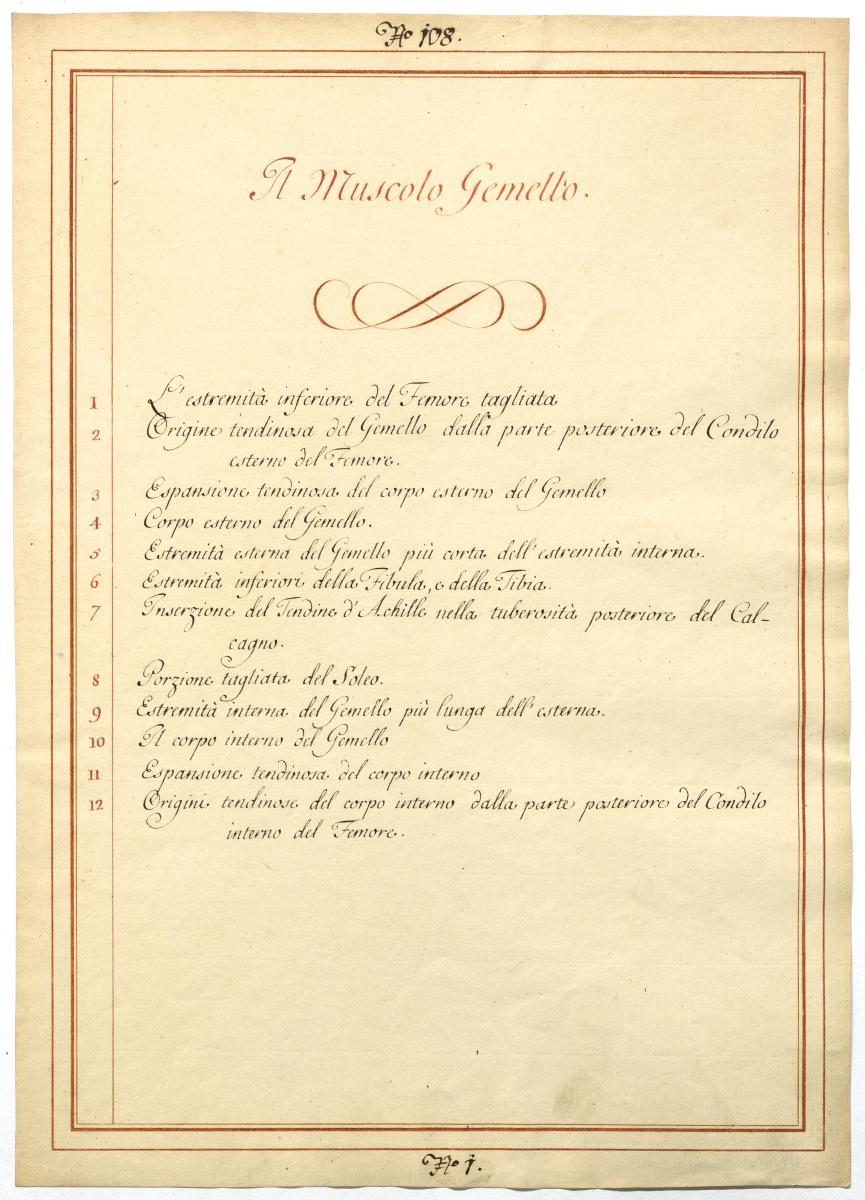 No 108.
Il Muscolo Gemello.
1 L'estremità inferiore del Femore tagliata
2 Origine tendinosa del Gemello dalla parte posteriore del Condilo
esterno del Femore.
3 Espansione tendinosa del corpo esterno del Gemello
4 Corpo esterno del Gemello.
5 Estremità esterna del Gemello più corta dell'estremità interna.
6 Estremità inferiori della Fibula, e della Tibia.
7 Inserzione del Tendine d'Achille nella tuberosità posteriore del Cal-
cagno.
8 Porzione tagliata del Soleo.
9 Estremità interna del Gemello più lunga dell'esterna.
10 Il corpo interno del Gemello
11 Espansione tendinosa del corpo interno
12 Origini tendinose del corpo interno dalla parte posteriore del Condilo
interno del Femore.
No 1.